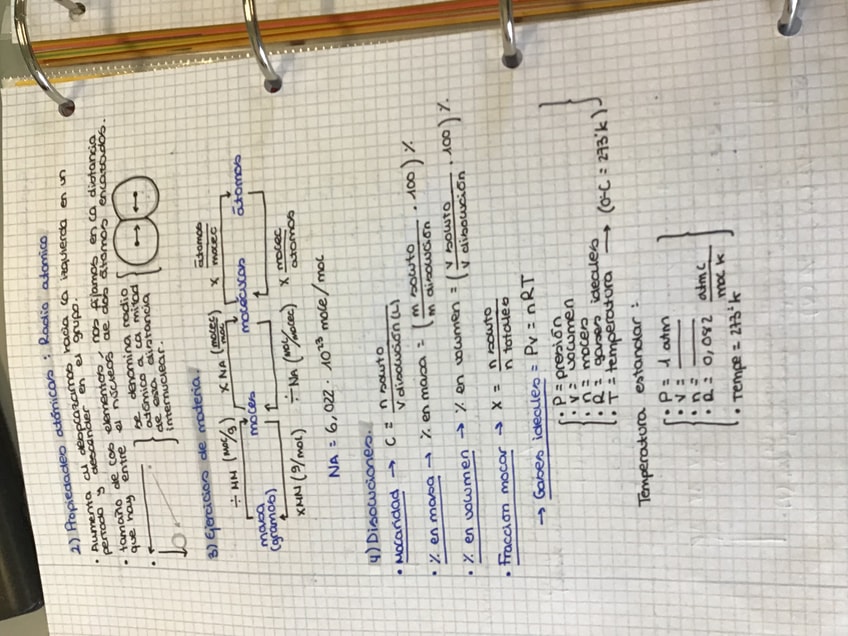 2) Propiedades atómicas: Radio atomico
• Aumenta al desplazarnos hacia la izquierda en un
periodo y descender en el grupo.
• tamaño de los elementos, nos fijamos en la distancia
que hay entre el núcleos de dos átomos enlazados.
se denomina radio
atómico a la mitad
de esa distancia
internuclear.
3) Ejercicios de materia.
÷ MM (mol/g) X NA (molec/mol) X átomos/molec
masa moles moléculas átomos
(gramos)
XMM (g/mol) ÷ NA (mol/molec) X molec/atomos
NA = 6,022 · 10^23 mole/mol
4) Disoluciones.
• Molaridad → C = n soluto / V disolución (L)
• % en masa → % en masa = (m soluto / m disolución · 100) %
• % en volumen → % en volumen = (V soluto / V disolución · 100) %.
• Fraccion molar → X = n soluto / n totales
→ Gases ideales = PV = nRT
• P = presión
• V = volumen
• n = moles
• R = gases ideales
• T = temperatura → (0ºC = 273ºk)
Temperatura estandar:
• P = 1 atm
• V =
• n =
• R = 0,082 atm L / mol k
• Tempe = 273ºk